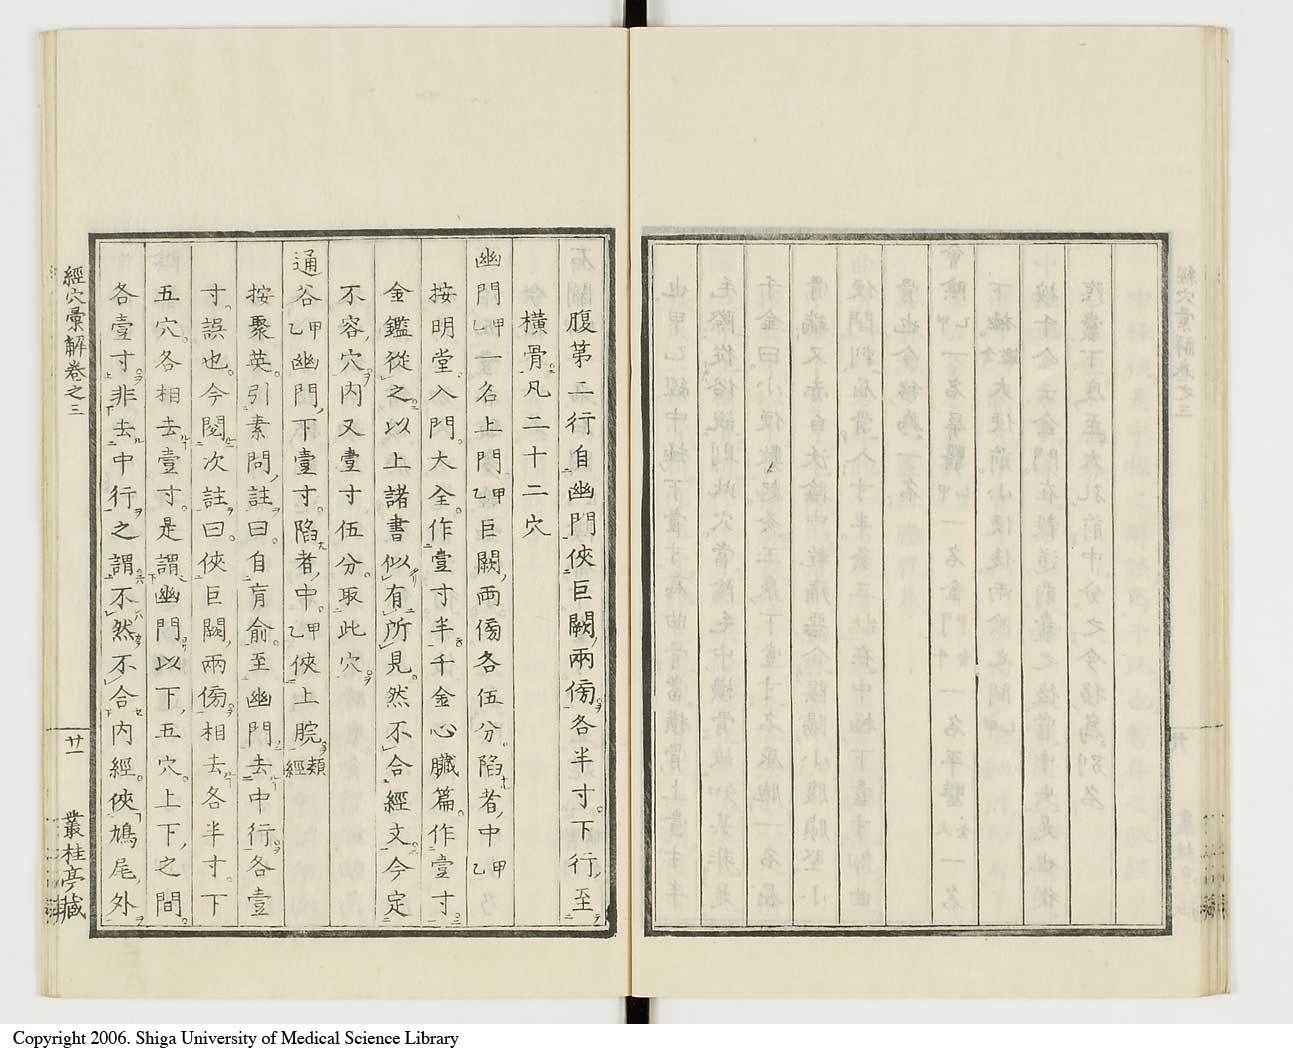 腹第二行自幽門俠巨闕兩傍各半寸下行至
橫骨凡二十二穴
幽門甲乙一名上門甲乙巨闕兩傍各伍分陷者中甲乙
按明堂入門大全作壹寸半千金心臟篇作壹寸
金鑑從之以上諸書似有所見然不合經文今定
不容穴內又壹寸伍分取此穴
通谷甲乙幽門下壹寸陷者中甲乙俠上脘類經
按聚英引素問註曰自肓俞至幽門去中行各壹
寸誤也今閱次註曰俠巨闕兩傍相去各半寸下
五穴各相去壹寸是謂幽門以下五穴上下之間
各壹寸非去中行之謂不然不合內經俠鳩尾外
經穴彙解卷之三
廿一
叢桂亭藏
Copyright 2006. Shiga University of Medical Science Library